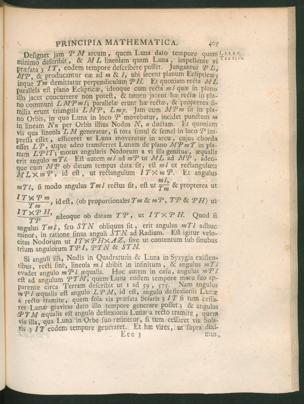 PRINCIPIA MATHEMATICA. 405
LIBER
TERTIUS
Designet jam PM arcum, quem Luna dato tempore quam
minimo describit, & ML lineolam quam Luna, impellente vi
præfata 3 IT, eodem tempore describere posset. Jungantur PL,
MP, & producantur eæ ad m & l, ubi secent planum Eclipticæ;
inque Tm demittatur perpendiculum PH. Et quoniam recta ML
parallela est plano Eclipticæ, ideoque cum recta ml quæ in plano
illo jacet concurrere non potest, & tamen jacent hæ rectæ in pla-
no communi LMPml; parallelæ erunt hæ rectæ, & propterea si-
milia erunt triangula LMP, Lmp. Jam cum MPm sit in pla-
no Orbis, in quo Luna in loco P movebatur, incidet punctum m
in lineam Nn per Orbis illius Nodos N, n ductam. Et quoniam
vis qua lineola LM generatur, si tota simul & semel in loco P im-
pressa esset, efficeret ut Luna moveretur in arcu, cujus chorda
esset LP, atque adeo transferret Lunam de plano MPmT in pla-
num LPlT; motus angularis Nodorum a vi illa genitus, æqualis
erit angulo mTl. Est autem ml ad mP ut ML ad MP, adeo-
que cum MP ob datum tempus data sit, est ml ut rectangulum
ML×mP, id est, ut rectangulum IT×mP. Et angulus
mTl, si modo angulus Tml rectus sit, est ut ml/Tm & propterea ut
IT×Pm/Tm, id est, (ob proportionales Tm & mP, TP & PH) ut
IT×PH/TP, adeoque ob datam TP, ut IT×PH. Quod si
angulus Tml, seu STN obliquus sit, erit angulus mTl adhuc
minor, in ratione sinus anguli STN ad Radium. Est igitur velo-
citas Nodorum ut IT×PH×AZ, sive ut contentum sub sinubus
trium angulorum TPI, PTN & STN.
Si anguli illi, Nodis in Quadraturis & Luna in Syzygia existen-
tibus, recti sint, lineola ml abibit in infinitum, & angulus mTl
evadet angulo mPl æqualis. Hoc autem in casu, angulus mPl
est ad angulum PTM, quem Luna eodem tempore motu suo ap-
parente circa Terram describit ut 1 ad 59, 575. Nam angulus
mPl æqualis est angulo LPM, id est, angulo deflexionis Lunæ
a recto tramite, quem sola vis præfata Solaris 3 IT si tum cessa-
ret Lunæ gravitas dato illo tempore generare posset; & angulus
PTM æqualis est angulo deflexionis Lunæ a recto tramite, quem
vis illa, qua Luna in Orbe suo retinetur, si tum cessaret vis Sola-
ris 3 IT eodem tempore generaret. Et hæ vires, ut supra dixi-
Eee 3 mus,